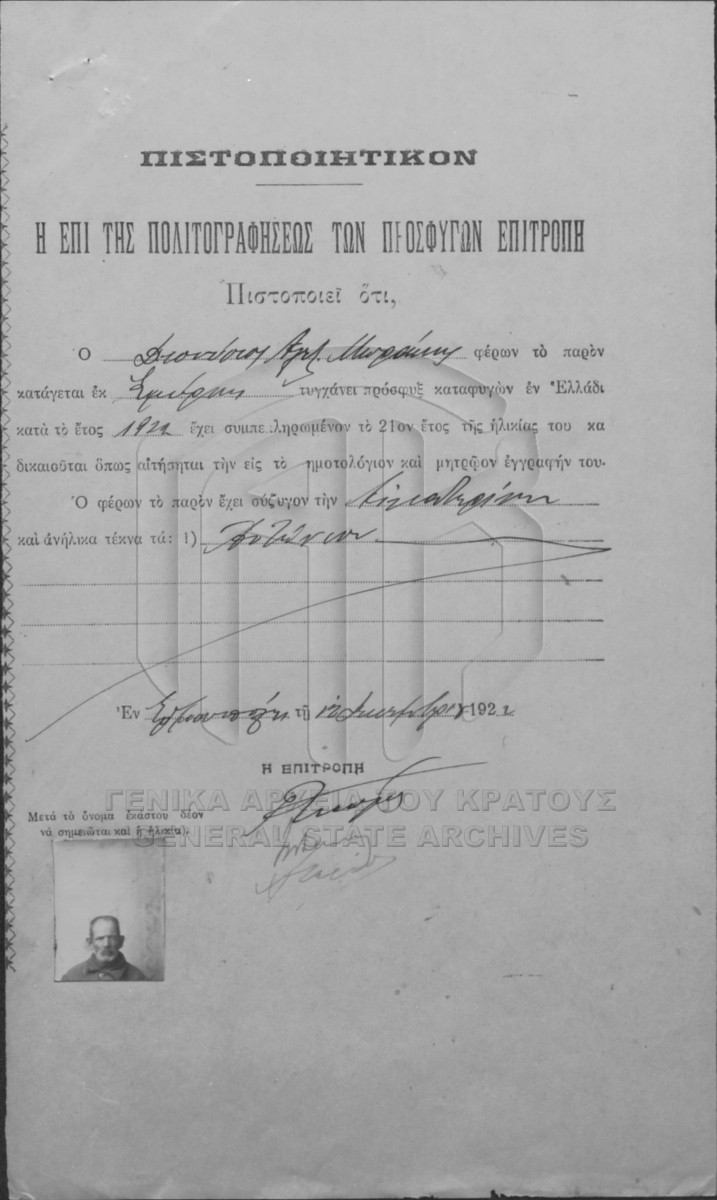 ΠΙΣΤΟΠΟΙΗΤΙΚΟΝ
Η ΕΠΙ ΤΗΣ ΠΟΛΙΤΟΓΡΑΦΗΣΕΩΣ ΤΩΝ ΠΡΟΣΦΥΓΩΝ ΕΠΙΤΡΟΠΗ
Πιστοποιεῖ ὅτι,
Ὁ Διονύσιος φέρων τὸ παρὸν
κατάγεται ἐκ Σμύρνης τυγχάνει πρόσφυξ καταφυγὼν ἐν Ἑλλάδι
κατὰ τὸ ἔτος 1922 ἔχει συμπε ληρωμένον τὸ 21ον ἔτος τῆς ἡλικίας του κα
δικαιοῦται ὅπως αἰτήσηται τὴν εἰς τὸ ημοτολόγιον καὶ μητρῷον ἐγγραφήν του.
Ὁ φέρων τὸ παρὸν ἔχει σύζυγον τὴν Αἰκατερίνην
καὶ ἀνήλικα τέκνα τά: 1) Ἀντώνιον
Ἐν Ἑρμουπόλει τῇ 12 192
Η ΕΠΙΤΡΟΠΗ
ΓΕΝΙΚΑ ΑΡΧΕΙΑ ΤΟΥ ΚΡΑΤΟΥΣ
GENERAL STATE ARCHIVES
Μετὰ τὸ ὄνομα ἑκάστου δέον
νὰ σημειῶται καὶ ἡ ἡλικία).